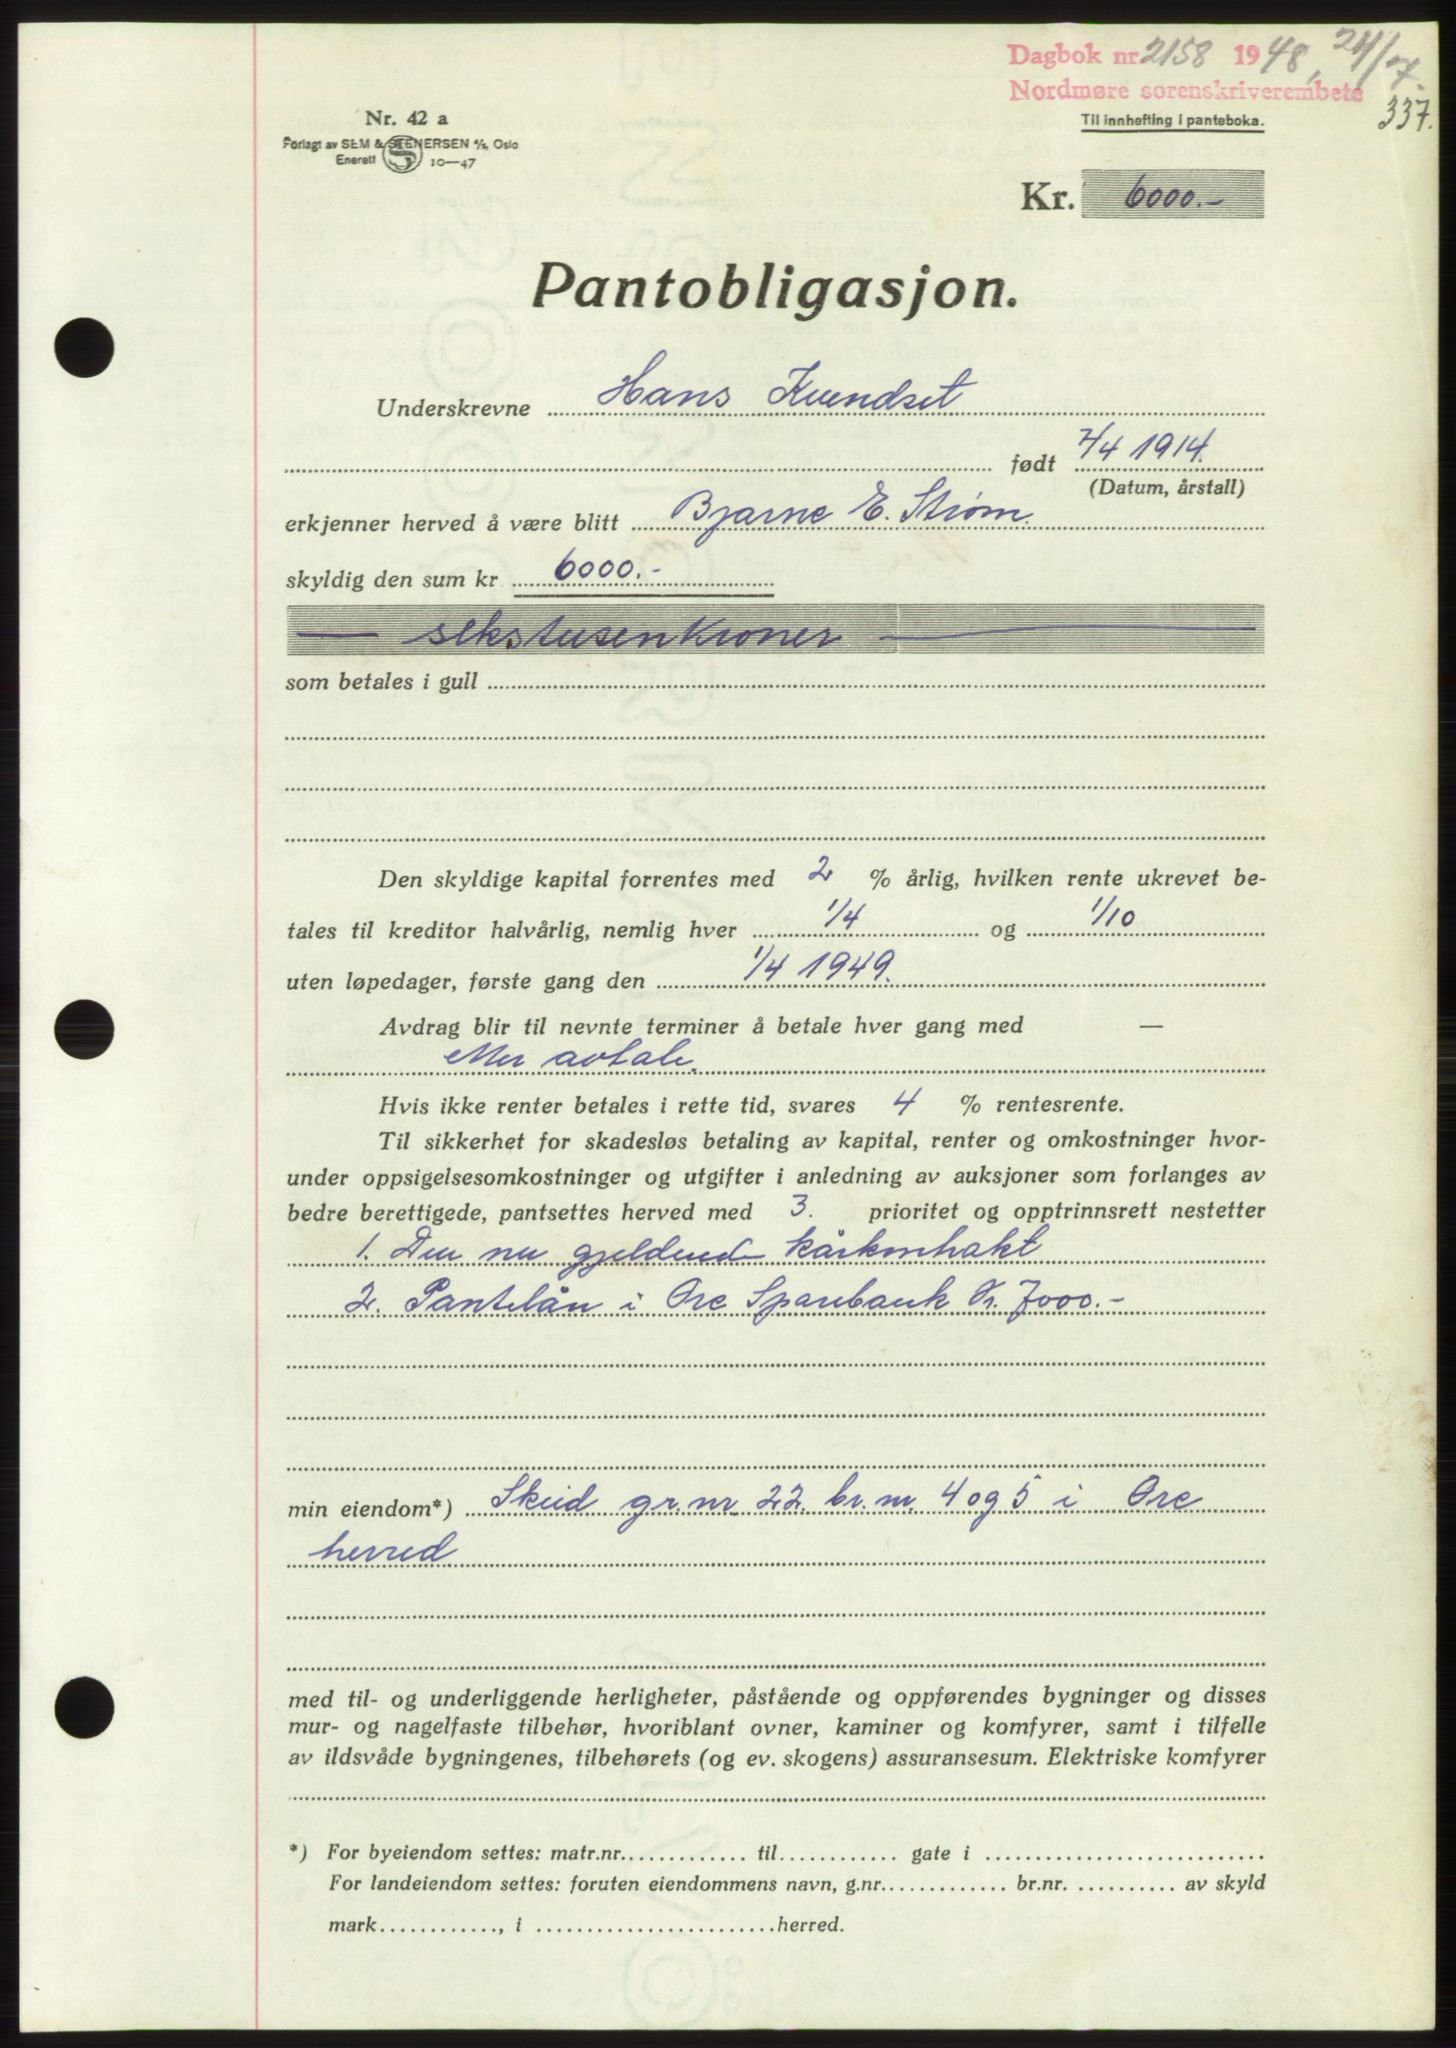 Dagbok nr. 2158 1948, 24/7.
Nordmøre sorenskriverembete
337.
Til innhefting i panteboka.
Nr. 42 a
Forlagt av SEM & STENERSEN A/S, Oslo
Enerett S 10—47
Kr. 6000.-
Pantobligasjon.
Underskrevne Hans Kvendset
født 7/4 1914.
(Datum, årstall)
erkjenner herved å være blitt Bjarne E. Strøm.
skyldig den sum kr 6000.-
— sekstusenkroner —
som betales i gull
Den skyldige kapital forrentes med 2 % årlig, hvilken rente ukrevet be-
tales til kreditor halvårlig, nemlig hver 1/4 og 1/10
uten løpedager, første gang den 1/4 1949.
Avdrag blir til nevnte terminer å betale hver gang med —
etter avtale.
Hvis ikke renter betales i rette tid, svares 4 % rentesrente.
Til sikkerhet for skadesløs betaling av kapital, renter og omkostninger hvor-
under oppsigelsesomkostninger og utgifter i anledning av auksjoner som forlanges av
bedre berettigede, pantsettes herved med 3. prioritet og opptrinnsrett nestetter
1. Den nu gjeldende kårkontrakt
2. Pantelån i Øre Sparebank Kr. 7000.-
min eiendom*) Skeid gr.nr. 22 br.nr. 4 og 5 i Øre
herred
med til- og underliggende herligheter, påstående og oppførendes bygninger og disses
mur- og nagelfaste tilbehør, hvoriblant ovner, kaminer og komfyrer, samt i tilfelle
av ildsvåde bygningenes, tilbehørets (og ev. skogens) assuransesum. Elektriske komfyrer
*) For byeiendom settes: matr.nr. til gate i
For landeiendom settes: foruten eiendommens navn, g.nr. br.nr. av skyld
mark , i herred.